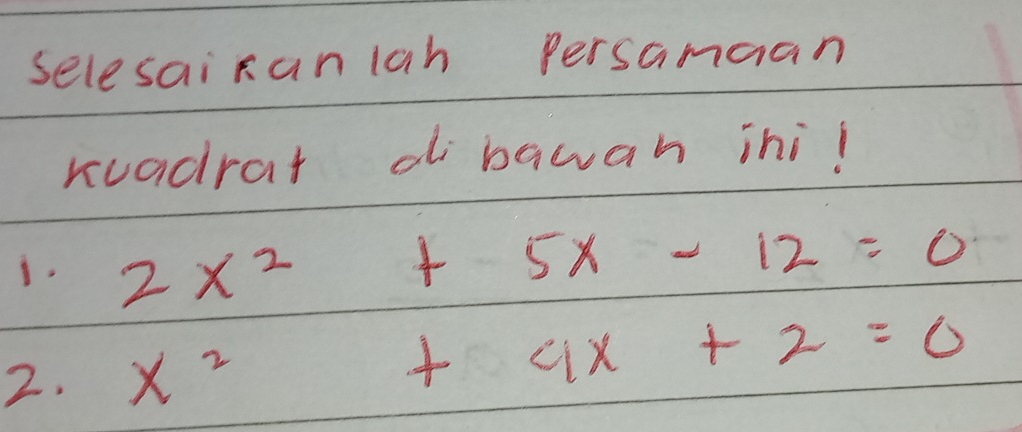 Selesaikanlah Persamaan
kuadrat di bawah ini!
1. 2x² + 5x - 12 = 0
2. x² + 4x + 2 = 0